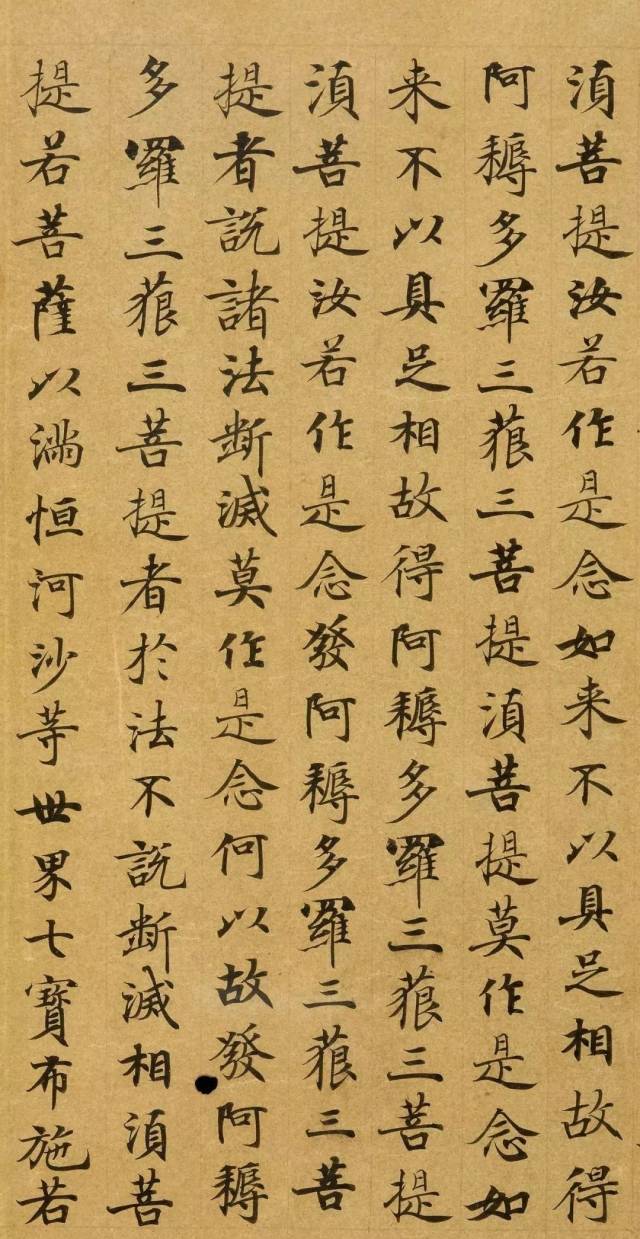 湏菩提汝若作是念如来不以具足相故得
阿耨多羅三藐三菩提湏菩提莫作是念如
来不以具足相故得阿耨多羅三藐三菩提
湏菩提汝若作是念發阿耨多羅三藐三菩
提者説諸法断滅莫作是念何以故發阿耨
多羅三藐三菩提者於法不説断滅相湏菩
提若菩薩以滿恒河沙等世界七寶布施若